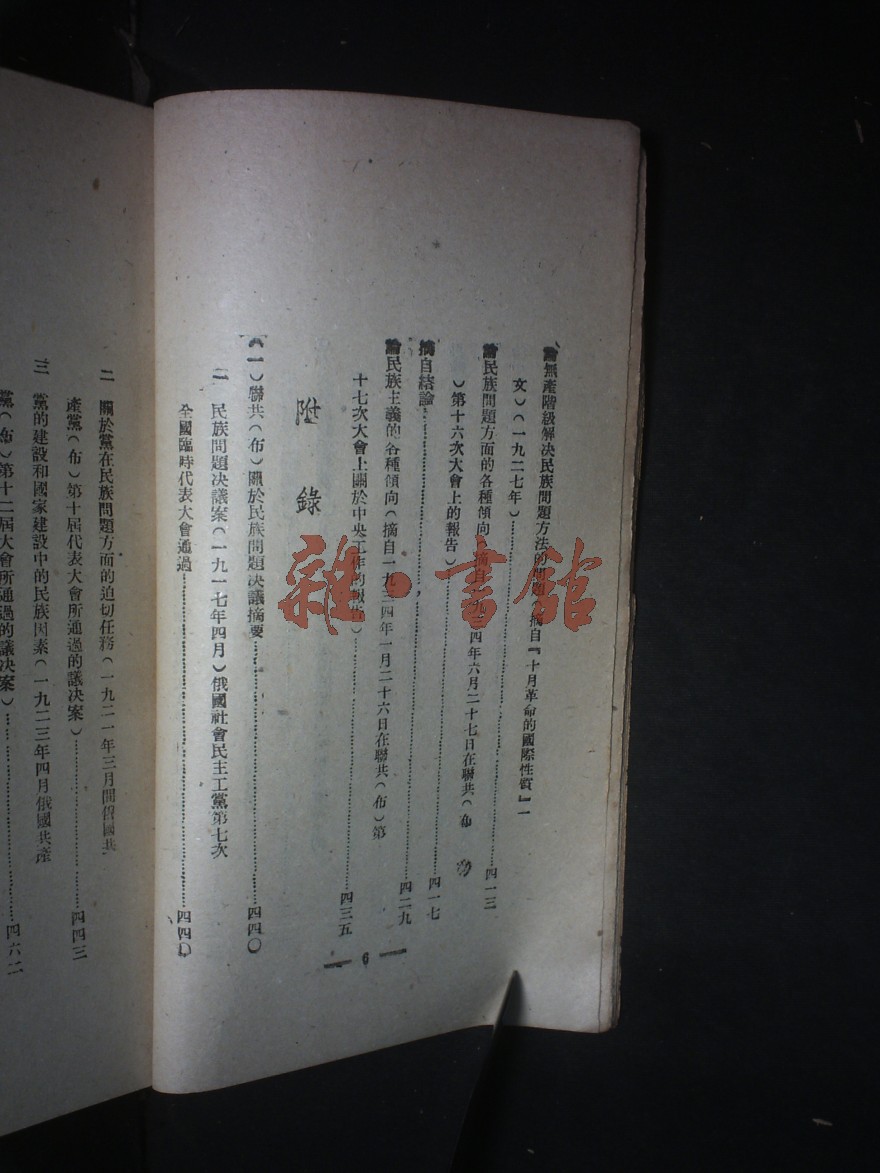 論無產階級解決民族問題方法的問題（摘自『十月革命的國際性質』一
文）（一九二七年）……四一三
論民族問題方面的各種傾向（摘自一九三四年六月二十七日在聯共（布
）第十六次大會上的報告）……四一七
摘自結論……四二九
論民族主義的各種傾向（摘自一九三四年一月二十六日在聯共（布）第
十七次大會上關於中央工作的報告）……四三五
附錄
（一）聯共（布）關於民族問題決議摘要……四四〇
民族問題決議案（一九一七年四月）俄國社會民主工黨第七次
全國臨時代表大會通過……四四〇
— 6 —
二 關於黨在民族問題方面的迫切任務（一九二一年三月間俄國共
產黨（布）第十屆代表大會所通過的議決案）……四四三
三 黨的建設和國家建設中的民族因素（一九二三年四月俄國共產
黨（布）第十二屆大會所通過的議決案）……四六二
雜·書館